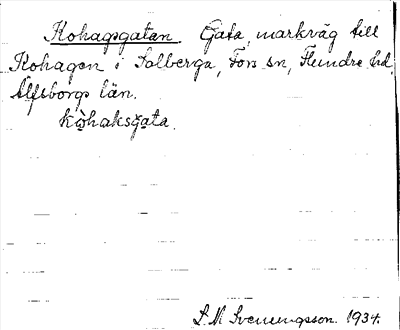 Kohagsgatan. Gata, markväg till
Kohagen i Salberga, Fors sn, Flundre hd,
Älfsborgs län.
kòhaksgata.
S. M. Svenungsson. 1934.